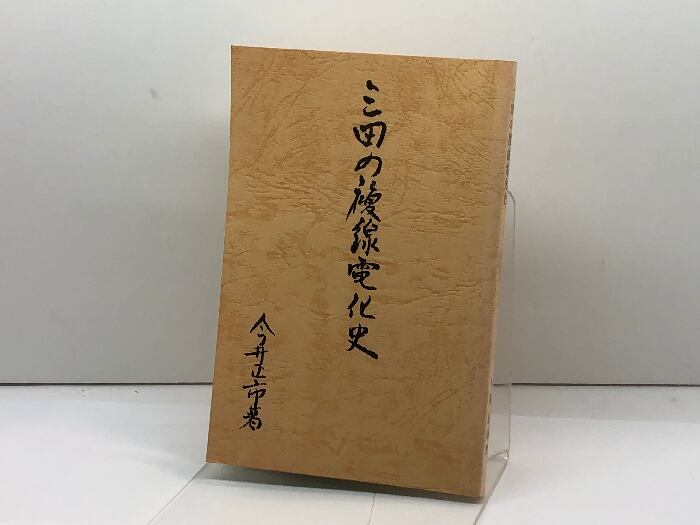 三田の複線電化史
今井正市著